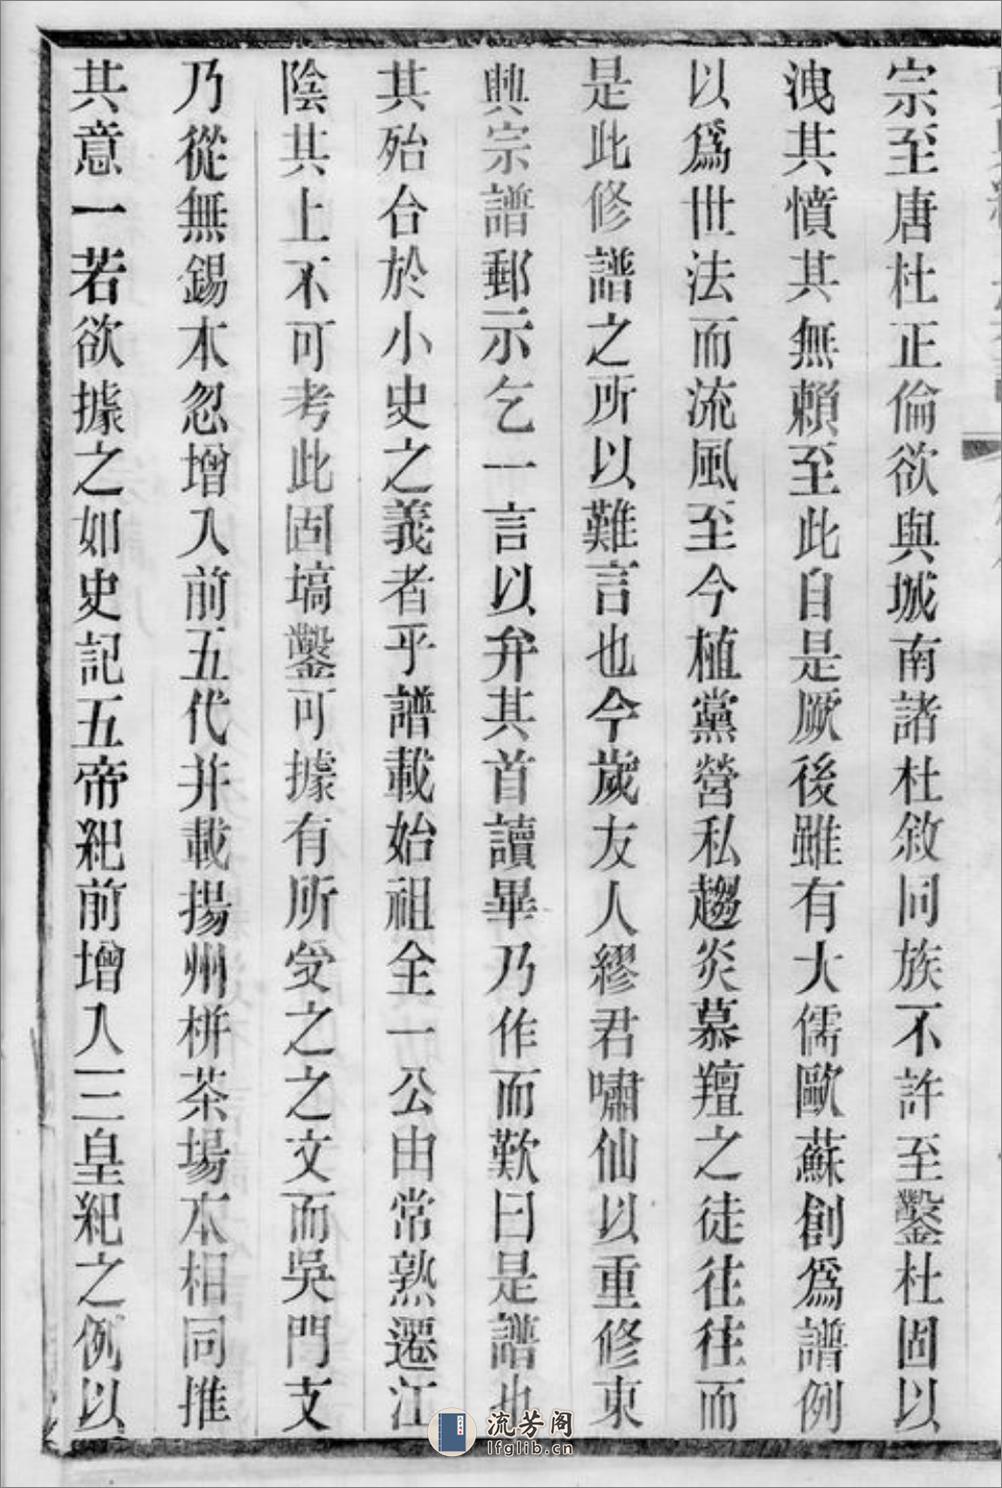 宗至唐杜正倫欲與城南諸杜敘同族不許至鑿杜固以
洩其憤其無賴至此自是厥後雖有大儒歐蘇創爲譜例
以爲世法而流風至今植黨營私趨炎慕羶之徒往往而
是此修譜之所以難言也今歲友人繆君嘯仙以重修東
興宗譜郵示乞一言以弁其首讀畢乃作而歎曰是譜也
其殆合於小史之義者乎譜載始祖全一公由常熟遷江
陰其上不可考此固塙鑿可據有所受之之文而吳門支
乃從無錫本忽增入前五代并載揚州栟茶場本相同推
其意一若欲據之如史記五帝紀前增入三皇紀之例以
流芳阁
lfglib.cn